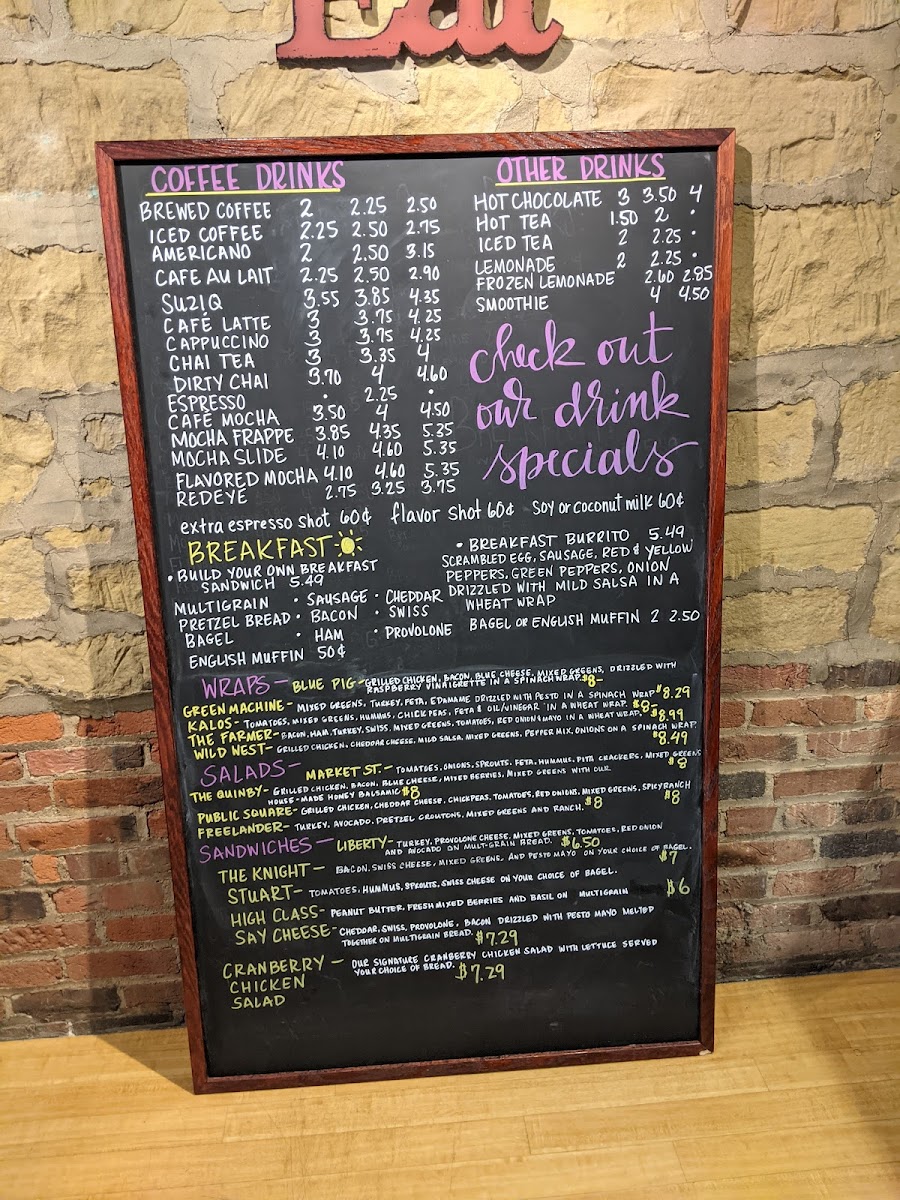 Eat
COFFEE DRINKS
BREWED COFFEE 2 2.25 2.50
ICED COFFEE 2.25 2.50 2.75
AMERICANO 2 2.50 3.15
CAFE AU LAIT 2.25 2.50 2.90
SUZIQ 3.55 3.85 4.35
CAFÉ LATTE 3 3.75 4.25
CAPPUCCINO 3 3.75 4.25
CHAI TEA 3 3.35 4
DIRTY CHAI 3.70 4 4.60
ESPRESSO • 2.25 •
CAFÉ MOCHA 3.50 4 4.50
MOCHA FRAPPE 3.85 4.35 5.35
MOCHA SLIDE 4.10 4.60 5.35
FLAVORED MOCHA 4.10 4.60 5.35
REDEYE 2.75 3.25 3.75
OTHER DRINKS
HOT CHOCOLATE 3 3.50 4
HOT TEA 1.50 2 •
ICED TEA 2 2.25 •
LEMONADE 2 2.25 •
FROZEN LEMONADE 2.60 2.85
SMOOTHIE 4 4.50
check out
our drink
specials
extra espresso shot 60¢ flavor shot 60¢ soy or coconut milk 60¢
BREAKFAST
• BUILD YOUR OWN BREAKFAST
SANDWICH 5.49
MULTIGRAIN • SAUSAGE • CHEDDAR
PRETZEL BREAD • BACON • SWISS
BAGEL • HAM • PROVOLONE
ENGLISH MUFFIN 50¢
• BREAKFAST BURRITO 5.49
SCRAMBLED EGG, SAUSAGE, RED & YELLOW
PEPPERS, GREEN PEPPERS, ONION
DRIZZLED WITH MILD SALSA IN A
WHEAT WRAP
BAGEL OR ENGLISH MUFFIN 2 2.50
WRAPS — BLUE PIG - GRILLED CHICKEN, BACON, BLUE CHEESE, MIXED GREENS, DRIZZLED WITH
RASPBERRY VINAIGRETTE IN A SPINACH WRAP. $8-
GREEN MACHINE - MIXED GREENS, TURKEY, FETA, EDAMAME DRIZZLED WITH PESTO IN A SPINACH WRAP $8.29
KALOS - TOMATOES, MIXED GREENS, HUMMUS, CHICK PEAS, FETA & OIL/VINEGAR IN A WHEAT WRAP. $8-
THE FARMER - BACON, HAM, TURKEY, SWISS, MIXED GREENS, TOMATOES, RED ONION & MAYO IN A WHEAT WRAP. $8.99
WILD NEST - GRILLED CHICKEN, CHEDDAR CHEESE, MILD SALSA, MIXED GREENS, PEPPER MIX, ONIONS ON A SPINACH WRAP.
$8.49
SALADS — MARKET ST. - TOMATOES, ONIONS, SPROUTS, FETA, HUMMUS, PITA CRACKERS, MIXED GREENS
$8
THE QUINBY - GRILLED CHICKEN, BACON, BLUE CHEESE, MIXED BERRIES, MIXED GREENS WITH OUR
HOUSE-MADE HONEY BALSAMIC $8
PUBLIC SQUARE - GRILLED CHICKEN, CHEDDAR CHEESE, CHICKPEAS, TOMATOES, RED ONIONS, MIXED GREENS, SPICY RANCH
$8
FREELANDER - TURKEY, AVOCADO, PRETZEL CROUTONS, MIXED GREENS AND RANCH. $8
SANDWICHES — LIBERTY - TURKEY, PROVOLONE CHEESE, MIXED GREENS, TOMATOES, RED ONION
AND AVOCADO ON MULTI-GRAIN BREAD. $6.50
THE KNIGHT - BACON, SWISS CHEESE, MIXED GREENS, AND PESTO MAYO ON YOUR CHOICE OF BAGEL.
$7
STUART - TOMATOES, HUMMUS, SPROUTS, SWISS CHEESE ON YOUR CHOICE OF BAGEL.
HIGH CLASS - PEANUT BUTTER, FRESH MIXED BERRIES AND BASIL ON MULTIGRAIN $6
SAY CHEESE - CHEDDAR, SWISS, PROVOLONE, BACON DRIZZLED WITH PESTO MAYO MELTED
TOGETHER ON MULTIGRAIN BREAD. $7.29
CRANBERRY - OUR SIGNATURE CRANBERRY CHICKEN SALAD WITH LETTUCE SERVED
CHICKEN YOUR CHOICE OF BREAD. $7.29
SALAD